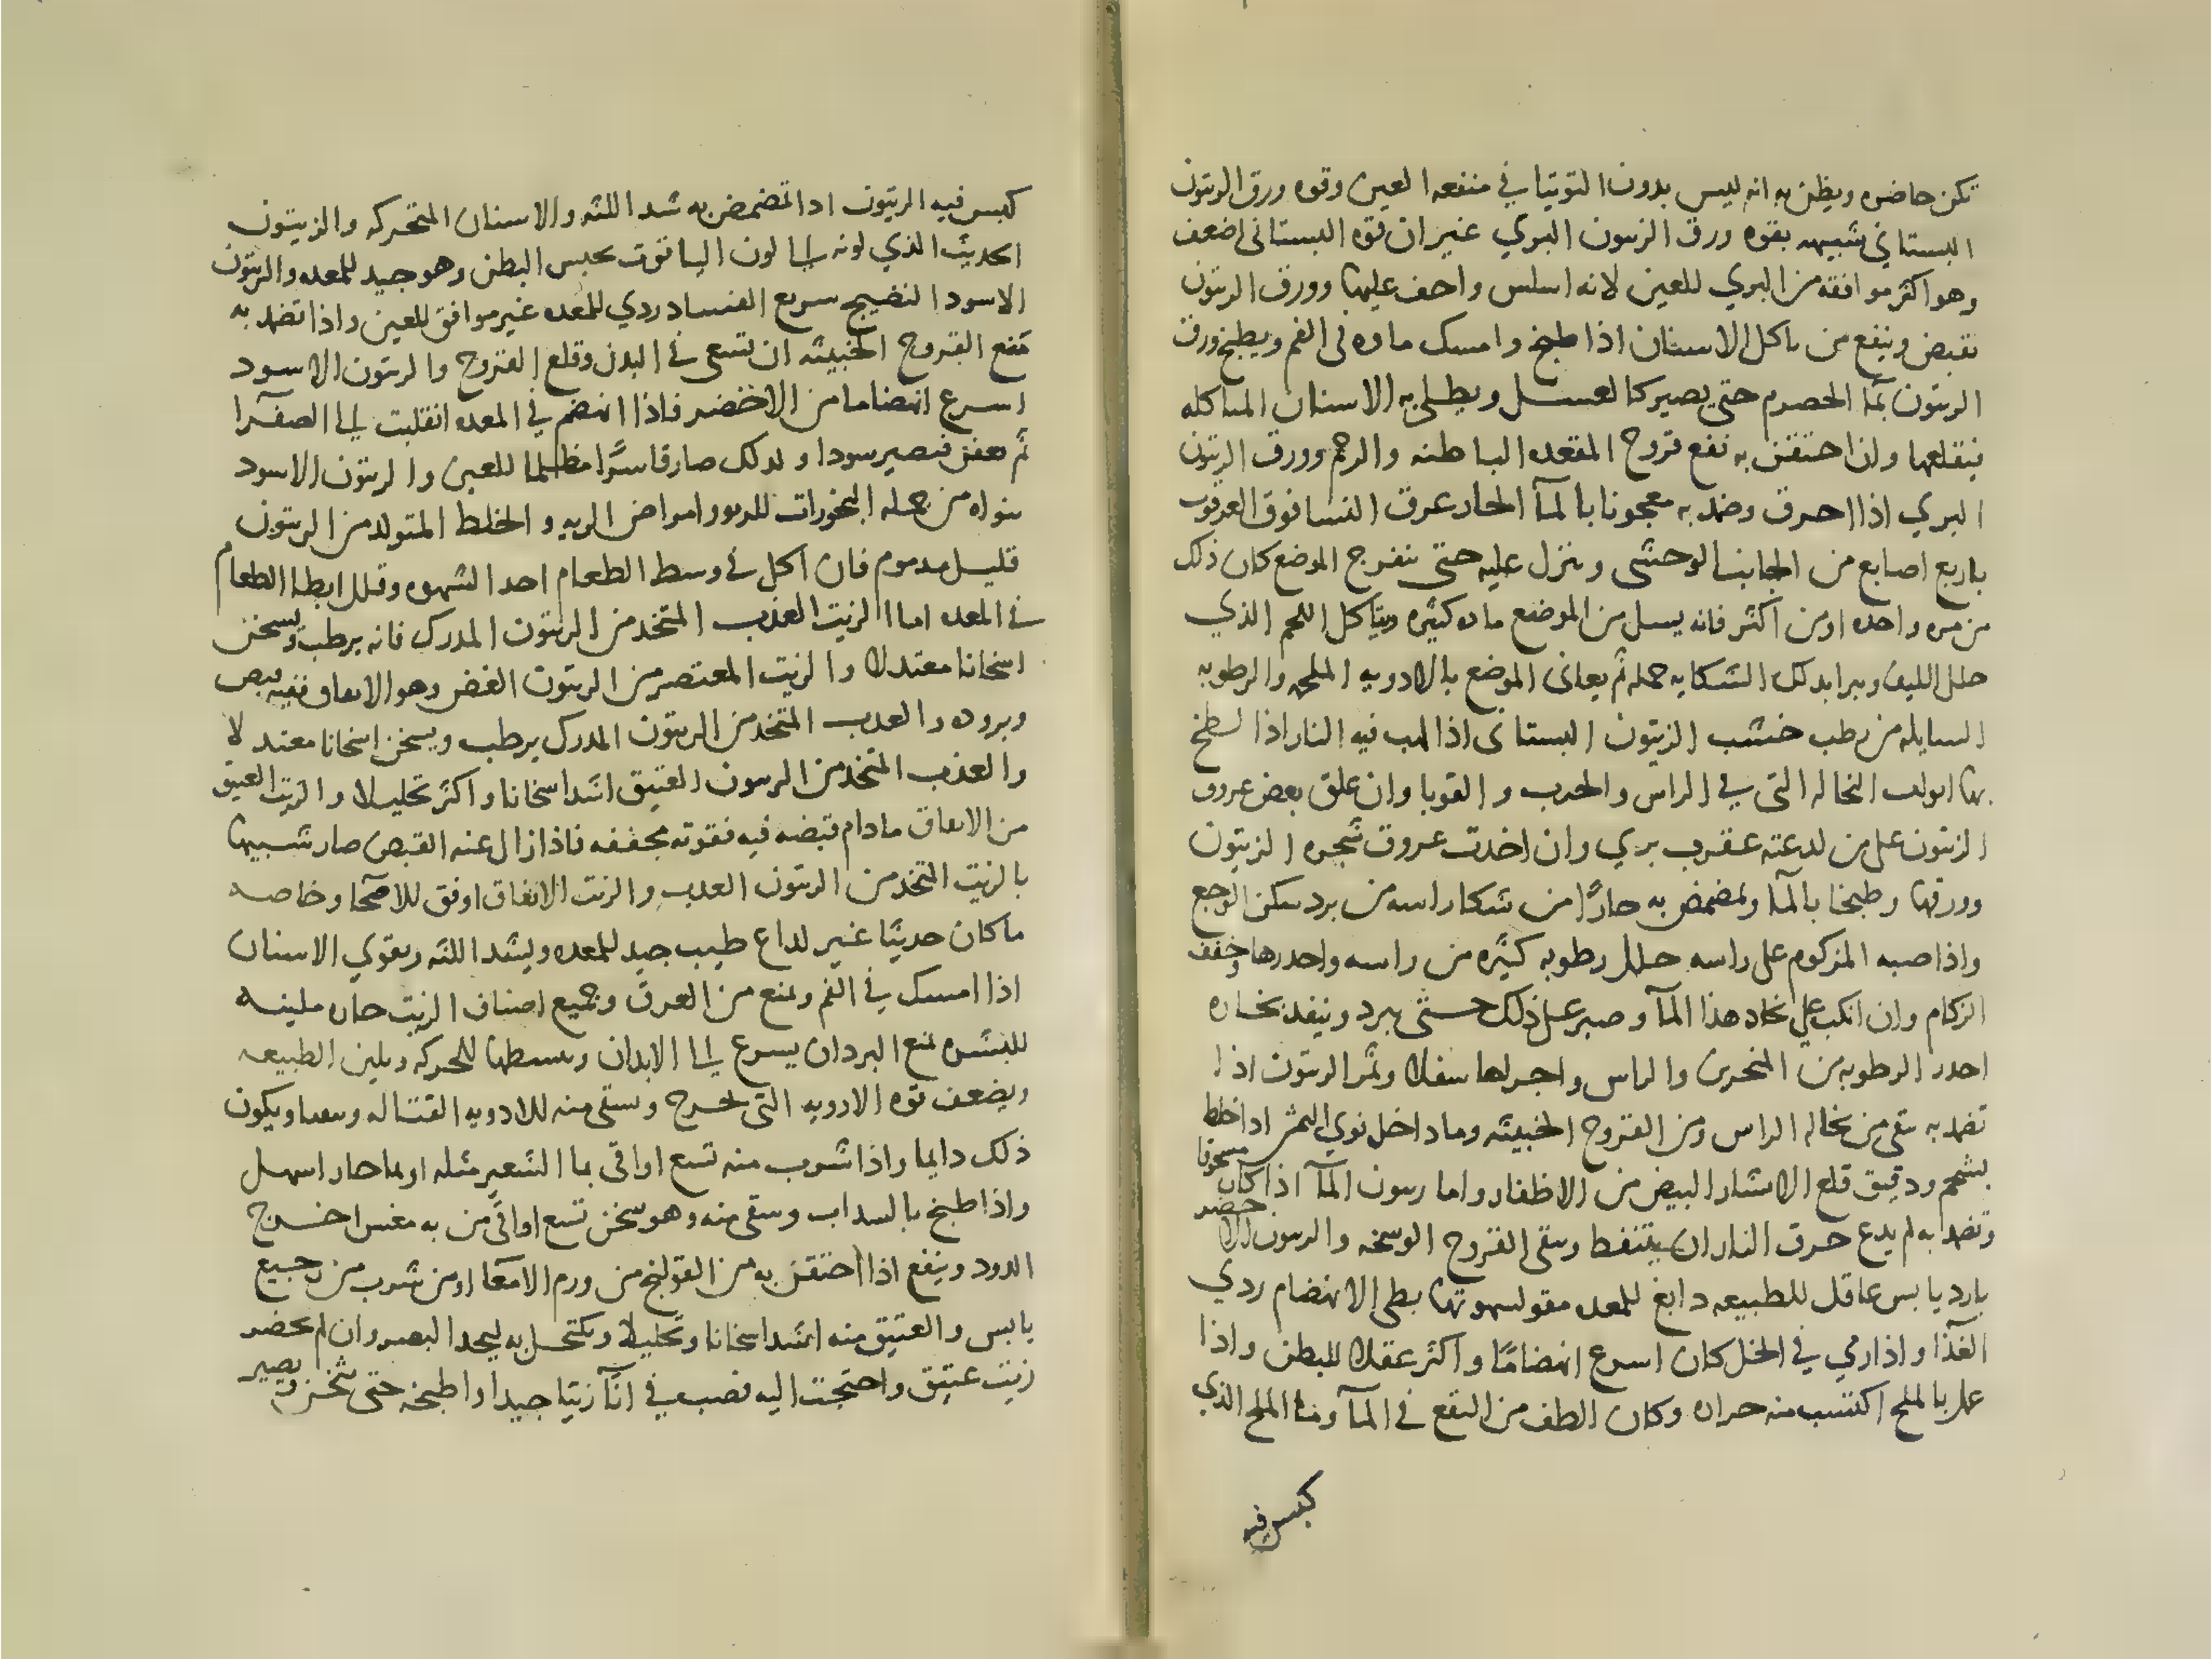 تكن حاضره ويظن به انه ليس بدون التوتيا في منفعه العين وقوه ورق الزيتون
البستاني شبيهه بقوه ورق الزيتون البري غير ان قوه البستاني اضعف
وهو اكثر موافقه من البري للعين لانه اسلس واخف عليها وورق الزيتون
يقبض وينفع من تاكل الاسنان اذا طبخ وامسك ماوه في الفم ويطبخ ورق
الزيتون بمآ الحصرم حتى يصير كالعسل ويطلى به الاسنان المتاكله
فيقلعها وان احتقن به نفع قروح المقعده الباطنه والرحم وورق الزيتون
البري اذا احرق وضمد به معجونا بالمآ الحار عرق النسا فوق العرقوب
باربع اصابع من الجانب الوحشى وينزل عليه حتى يتفرج الموضع كان ذلك
من مره واحده او من اكثر فانه يسيل من الموضع ماده كثيره ويتاكل اللحم الذي
خلل الليف ويبرا بذلك الشكايه جمله ثم يعانى الموضع بالادويه الملحمه والرطوبه
السايله من رطب خشب الزيتون البستانى اذا الهب فيه النار اذا لطخ
بها ابرات النخاله التى في الراس والجرب والقوبا وان علق بعض عروق
الزيتون على من لدغته عقرب بري وان اخذت عروق شجره الزيتون
وورقها وطبخا بالمآ وتمضمض به حارًا من شكا راسه من برد سكن الوجع
واذا صبه المزكوم على راسه حلل رطوبه كثيره من راسه واحدرها وخفف
الزكام وان انكب على بخار هذا المآ وصبر على ذلك حتى يبرد وينفد بخاره
احدر الرطوبه من المنخرين والراس واجراها سفلا وثمر الزيتون اذا
تضمد به نقى من نخاله الراس ومن القروح الخبيثه وما داخل نوي الثمر اذا خلط
بشحم ودقيق قلع الاثار البيض من الاظفار واما زيتون المآ اذا كان مسحوقا
وتضمد به لم يدع حرق النار ان يتنفط ونقى القروح الوسخه والزيتون الاخضر
بارد يابس عاقل للطبيعه دابغ للمعده مقو لشهوتها بطى الانهضام ردي
الغذا واذا ربي في الخل كان اسرع انهضامًا واكثر عقلا للبطن واذا
عمل بالملح اكتسب منه حراره وكان الطف من النقع في المآ ومآ الملح الذي
كبس فيه
كبس فيه الزيتون اذا تمضمض به شد اللثه والاسنان المتحركه والزيتون
الحديث الذي لونه الى لون الياقوت يحبس البطن وهو جيد للمعده والزيتون
الاسود النضيج سريع الفساد ردي للمعده غير موافق للعين واذا تضمد به
منع القروح الخبيثه ان تسعى في البدن وقلع القروح والزيتون الاسود
اسرع انهضاما من الاخضر فاذا انهضم في المعده انقلبت الى الصفرآ
ثم تعفن فتصير سودا ولذلك صار قاسرًا مظلما للعين والزيتون الاسود
بنواه من جمله البخورات للربو وامراض الريه والخلط المتولد من الزيتون
قليل مذموم فان اكل في وسط الطعام احد الشهوه وقلل ابطا الطعام
في المعده اما الزيت العذب المتخذ من الزيتون المدرك فانه يرطب ويسخن
اسخانا معتدلا والزيت المعتصر من الزيتون الغض وهو الانفاق ففيه قبض
وبروده والعذب المتخذ من الزيتون المدرك يرطب ويسخن اسخانا معتدلا
والعذب المتخذ من الزيتون العتيق اشد اسخانا واكثر تحليلا والزيت العتيق
من الانفاق مادام قبضه فيه فقوته مجففه فاذا زال عنه القبض صار شبيها
بالزيت المتخذ من الزيتون العذب والزيت الانفاق اوفق للاصحآ وخاصه
ماكان حديثًا غير لداع طيب جيد للمعده ويشد اللثه ويقوي الاسنان
اذا امسك في الفم ويمنع من العرق وجميع اصناف الزيت حاره ملينه
للبشره تمنع البرد ان يسرع الى الابدان وتبسطها للحركه ويلين الطبيعه
ويضعف قوه الادويه التي تجرح ويسقى منه للادويه القتاله ويتقيا ويكون
ذلك دايما واذا شرب منه تسع اواقى بمآ الشعير مثله او بما حار اسهل
واذا طبخ بالسداب وسقى منه وهو سخن تسع اواقى من به مغس اخرج
الدود وينفع اذا احتقن به من القولنج من ورم الامعآ او من شرب من رجيع
يابس والعتيق منه اشد اسخانا وتحليلا ويكتحل به ليحد البصر وان لم يحضر
زيت عتيق واحتجت اليه فصب في انآ زيتا جيدا واطبخه حتى يثخن ويصير